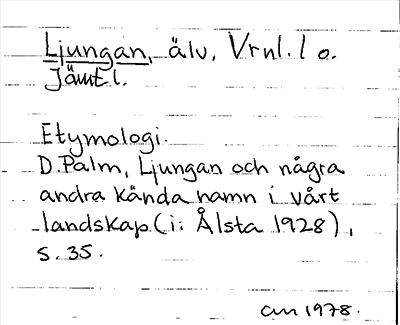 Ljungan, älv, Vrnl. l o.
Jämt. l.
Etymologi.
D. Palm, Ljungan och några
andra kända namn i vårt
landskap. (i: Ålsta 1928),
s. 35.
1978.